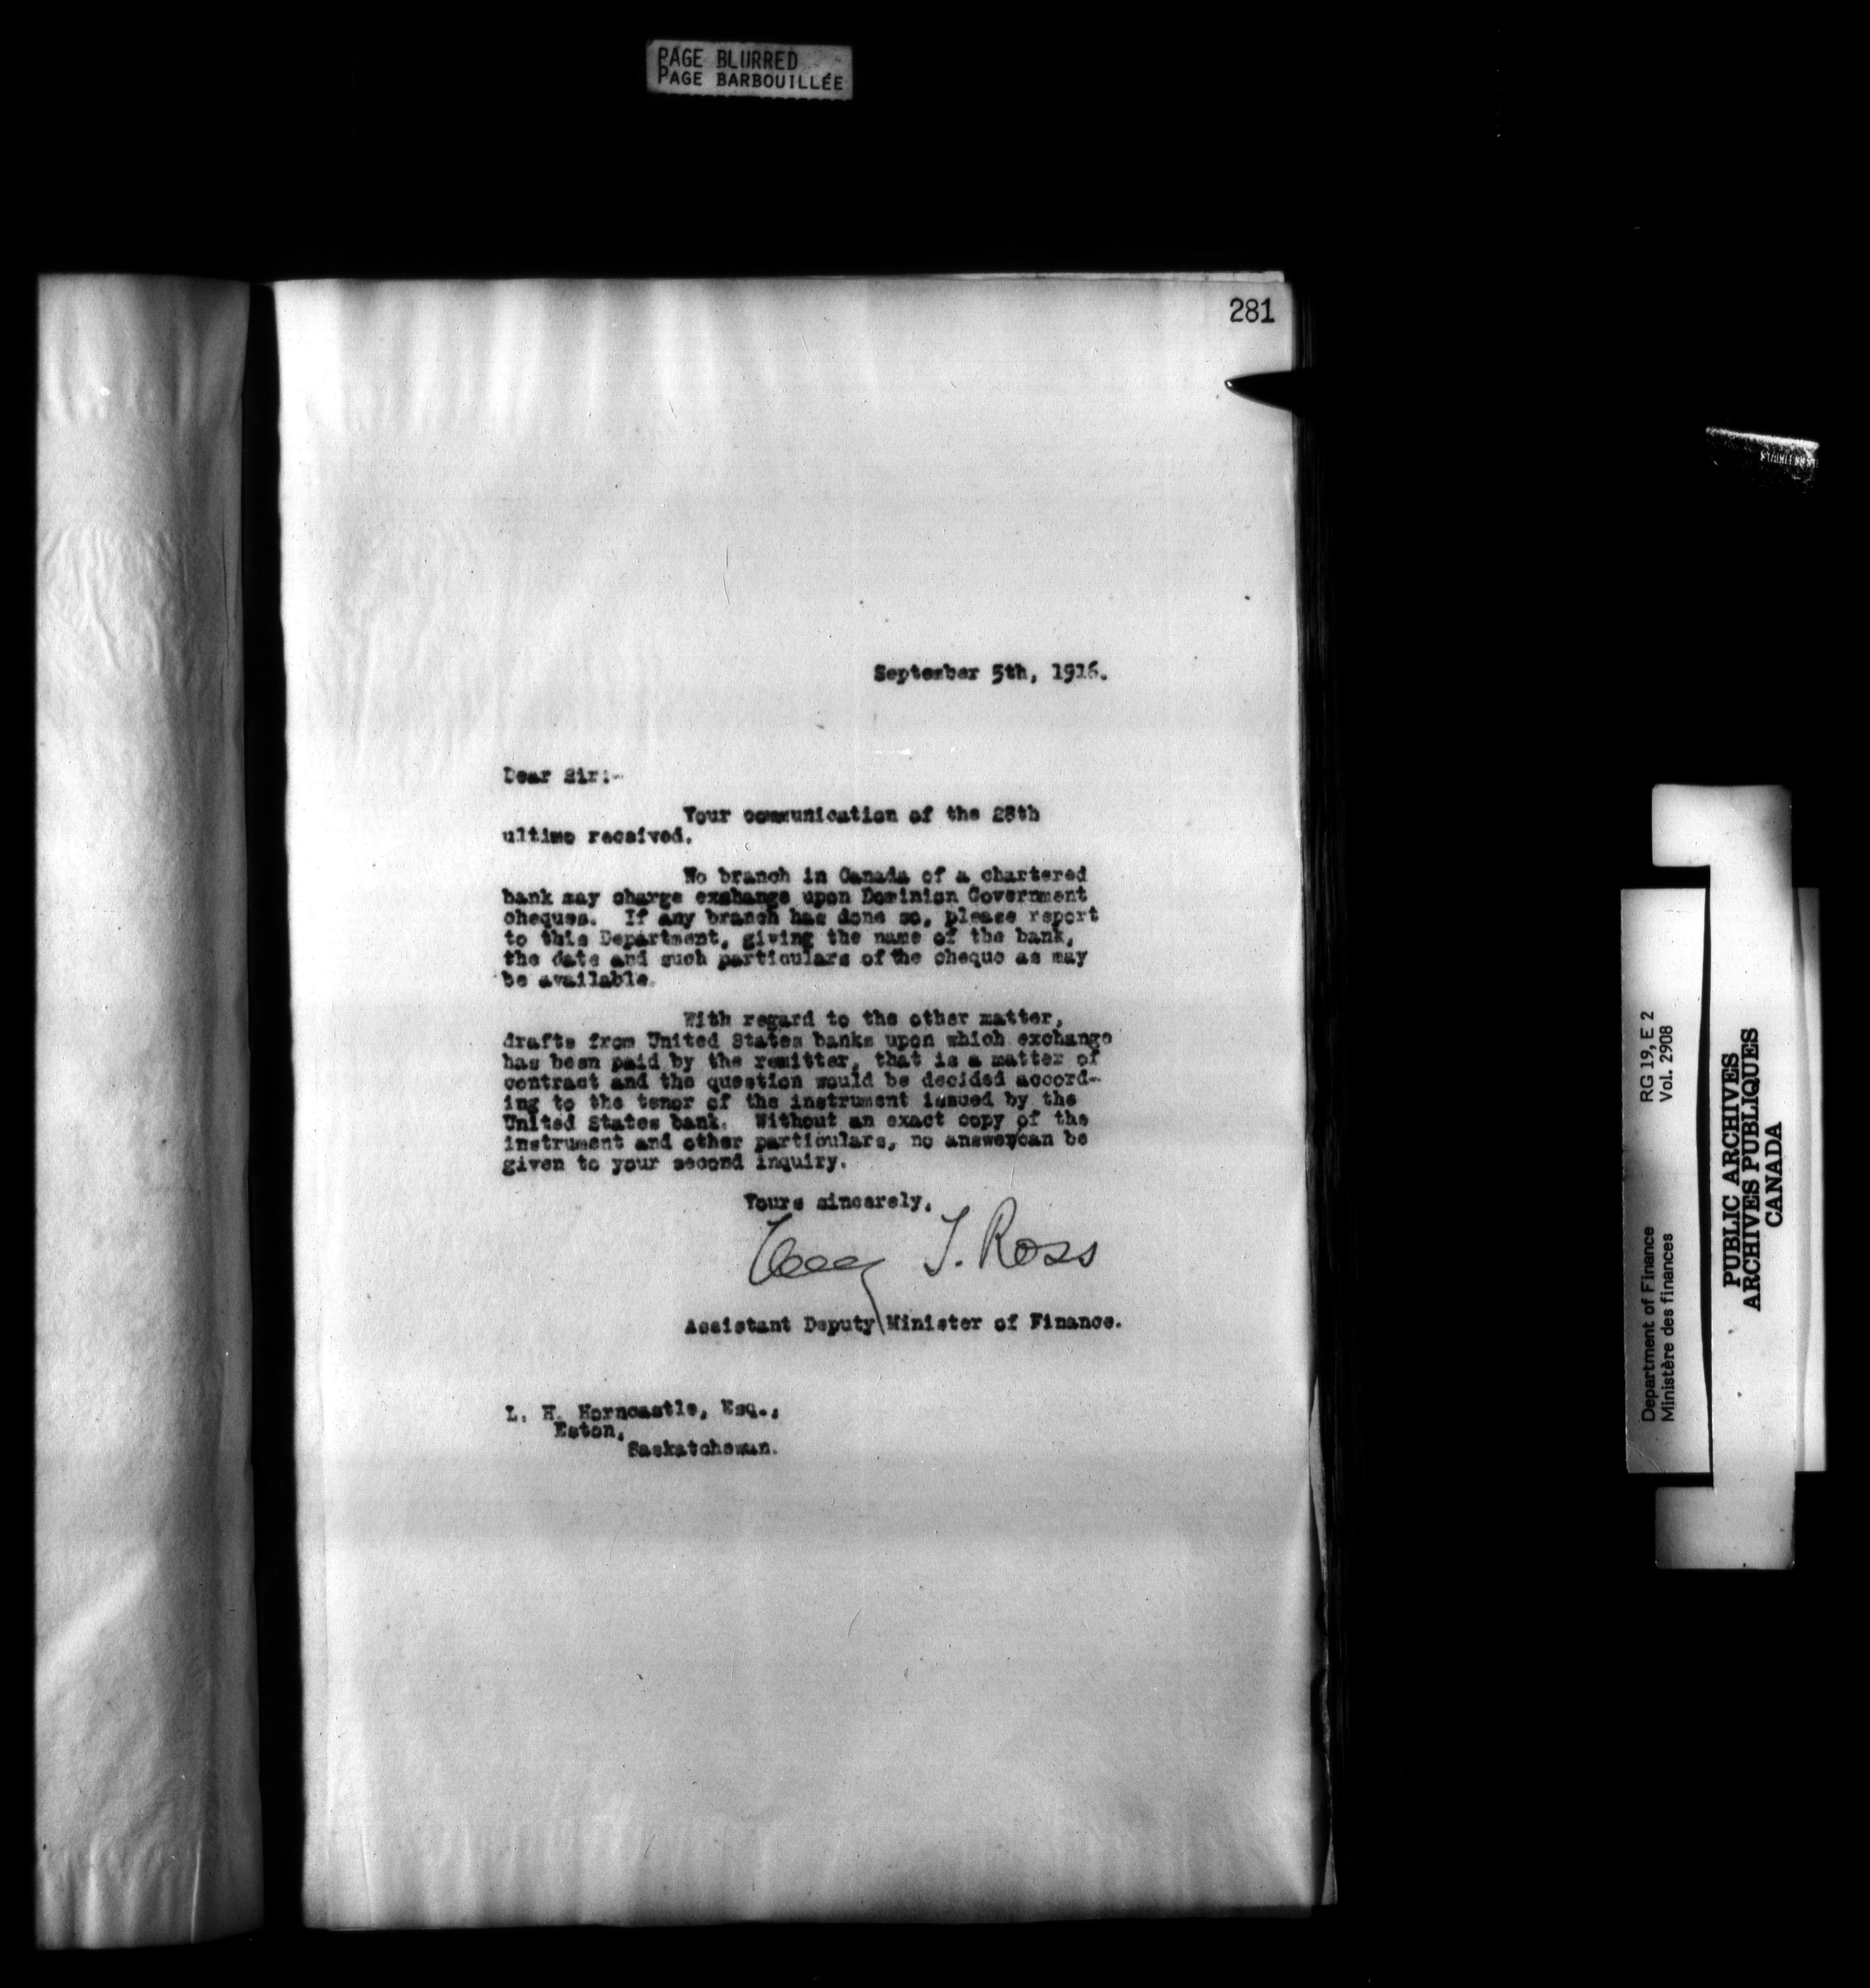 PAGE BLURRED
PAGE BARBOUILLÉE
281
September 5th, 1916.
Dear Sir:-
Your communication of the 28th
ultimo received.
No branch in Canada of a chartered
bank may charge exchange upon Dominion Government
cheques. If any branch has done so, please report
to this Department, giving the name of the bank,
the date and such particulars of the cheque as may
be available.
With regard to the other matter,
drafts from United States banks upon which exchange
has been paid by the remitter, that is a matter of
contract and the question would be decided accord-
ing to the tenor of the instrument issued by the
United States bank. Without an exact copy of the
instrument and other particulars, no answer/can be
given to your second inquiry.
Yours sincerely,
T. Ross
Assistant Deputy Minister of Finance.
L. H. Horncastle, Esq.,
Eston,
Saskatchewan.
Department of Finance RG 19, E 2
Ministère des finances Vol. 2908
PUBLIC ARCHIVES
ARCHIVES PUBLIQUES
CANADA